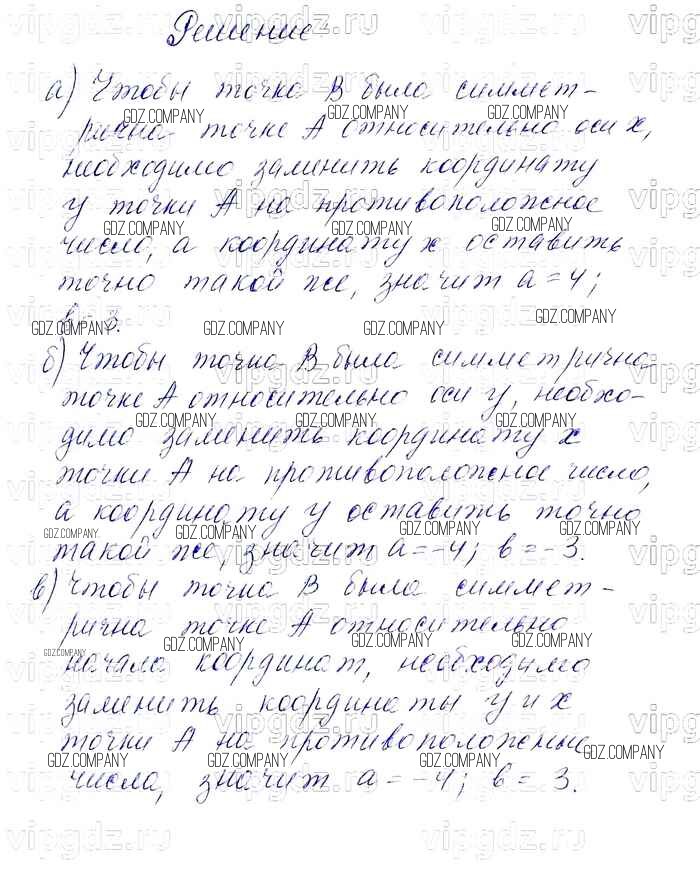 Решение
а) Чтобы точка В была симмет-
рична точке А относительно оси x,
необходимо заменить координату
y точки А на противоположное
число, а координату x оставить
точно такой же, значит a = 4;
b = 3.
б) Чтобы точка В была симметрична
точке А относительно оси y, необхо-
димо заменить координату x
точки А на противоположное число,
а координату y оставить точно
такой же, значит a = -4; b = -3.
в) Чтобы точка В была симмет-
рична точке А относительно
начала координат, необходимо
заменить координаты y и x
точки А на противоположные
числа, значит a = -4; b = 3.
vipgdz.ru
GDZ.COMPANY